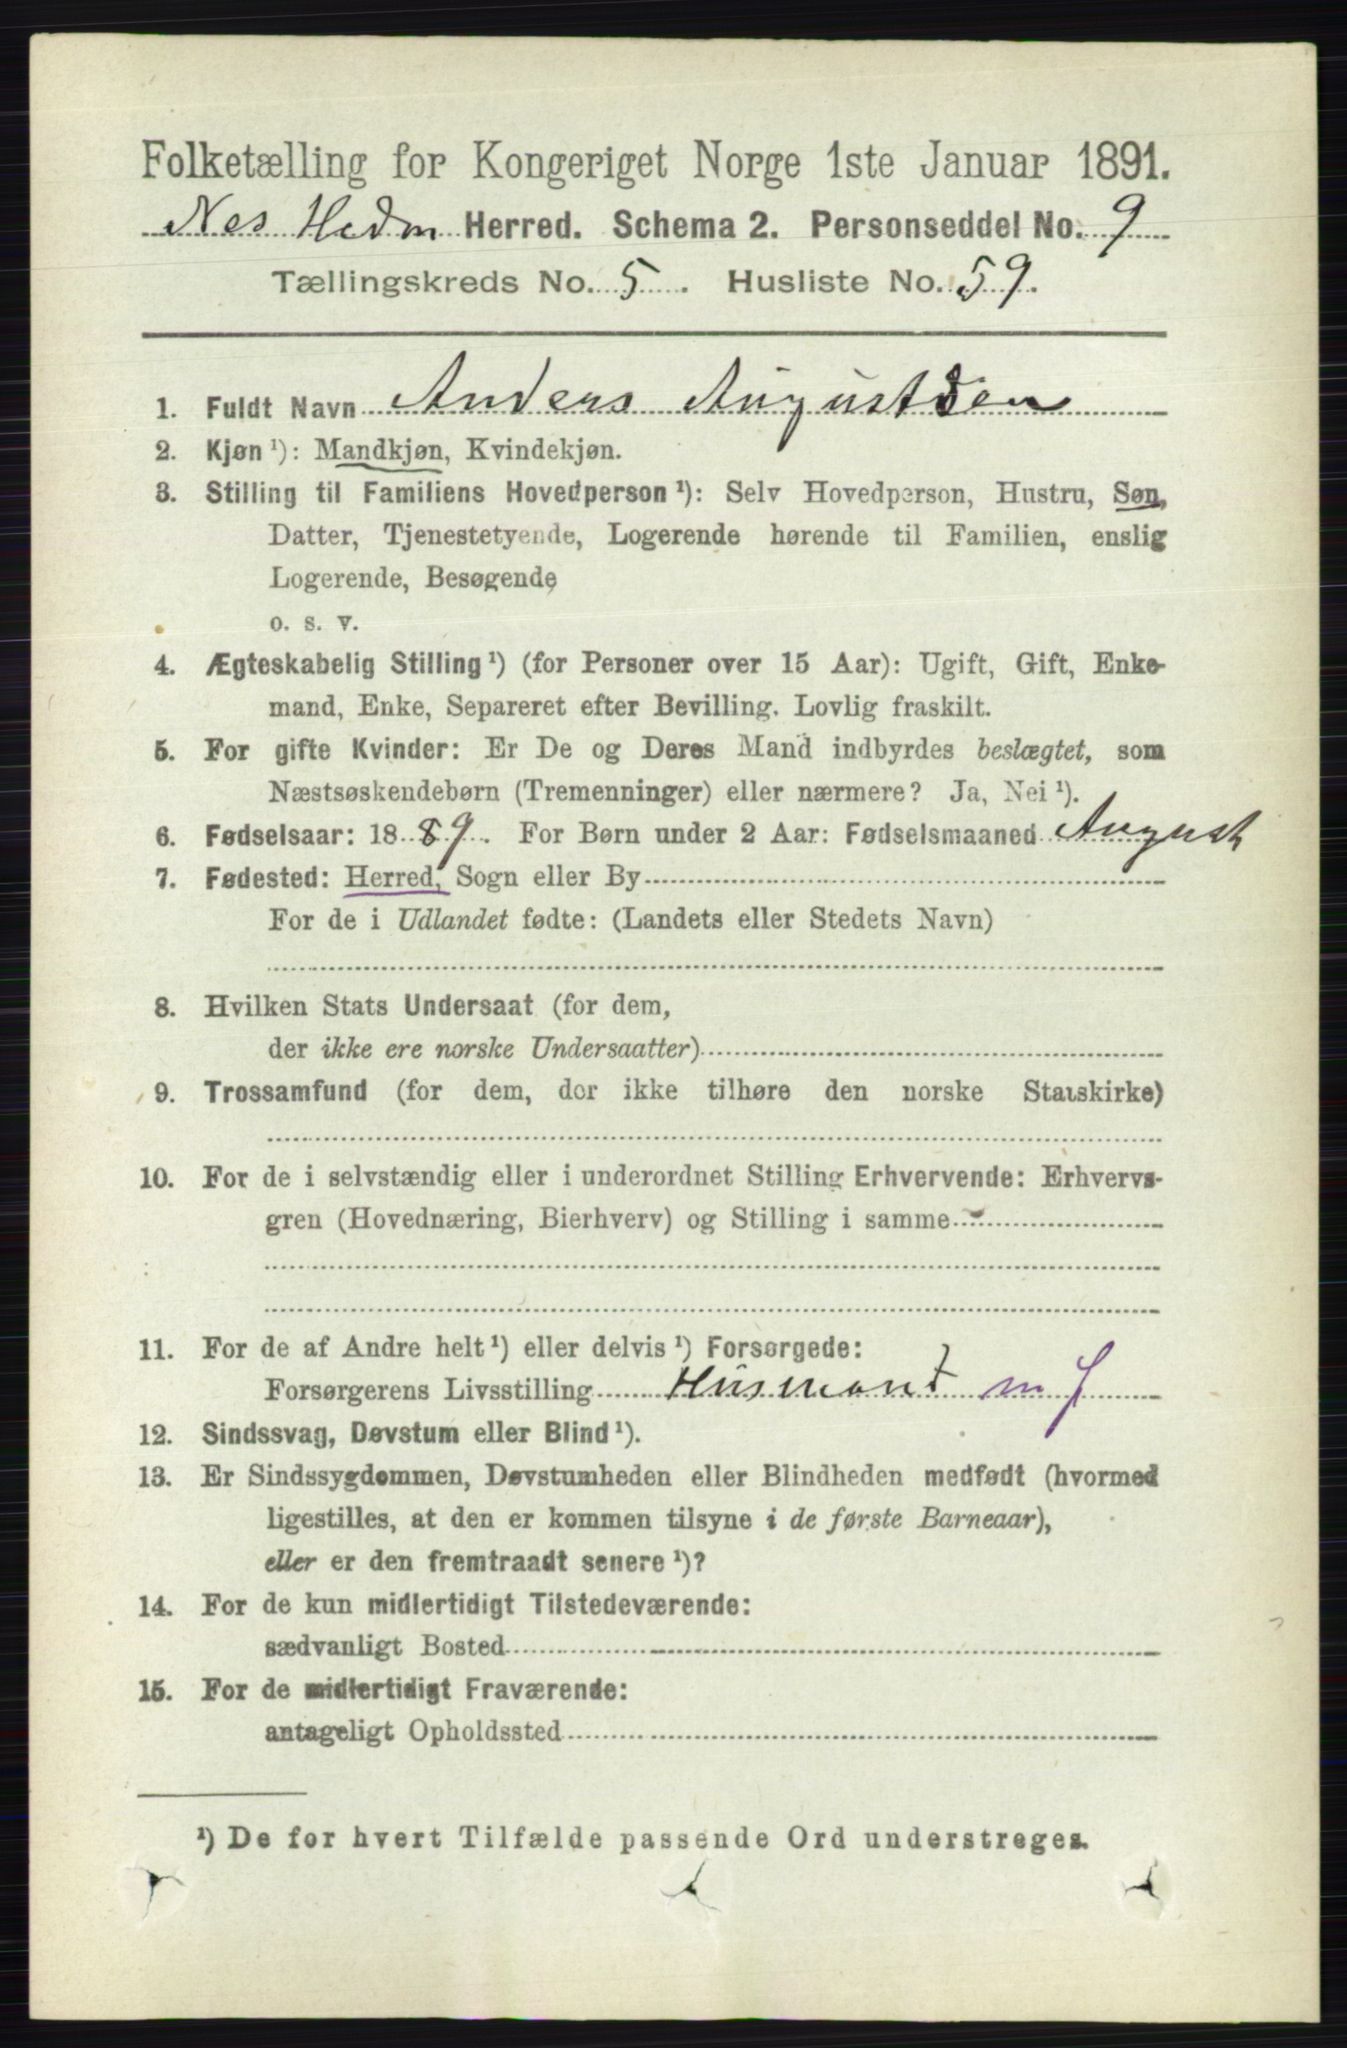 Folketælling for Kongeriget Norge 1ste Januar 1891.
Nes Hedm Herred. Schema 2. Personseddel No. 9
Tællingskreds No. 5. Husliste No. 59.
1. Fuldt Navn Anders Augustsen
2. Kjøn ¹): Mandkjøn, Kvindekjøn.
3. Stilling til Familiens Hovedperson ¹): Selv Hovedperson, Hustru, Søn,
Datter, Tjenestetyende, Logerende hørende til Familien, enslig
Logerende, Besøgende
o. s. v.
4. Ægteskabelig Stilling ¹) (for Personer over 15 Aar): Ugift, Gift, Enke-
mand, Enke, Separeret efter Bevilling. Lovlig fraskilt.
5. For gifte Kvinder: Er De og Deres Mand indbyrdes beslægtet, som
Næstsøskendebørn (Tremenninger) eller nærmere? Ja, Nei ¹).
6. Fødselsaar: 1889. For Børn under 2 Aar: Fødselsmaaned August
7. Fødested: Herred, Sogn eller By
For de i Udlandet fødte: (Landets eller Stedets Navn)
8. Hvilken Stats Undersaat (for dem,
der ikke ere norske Undersaatter)
9. Trossamfund (for dem, der ikke tilhøre den norske Statskirke)
10. For de i selvstændig eller i underordnet Stilling Erhvervende: Erhvervs-
gren (Hovednæring, Bierhverv) og Stilling i samme
11. For de af Andre helt ¹) eller delvis ¹) Forsørgede:
Forsørgerens Livsstilling Husmand m j
12. Sindssvag, Døvstum eller Blind ¹).
13. Er Sindssygdommen, Døvstumheden eller Blindheden medfødt (hvormed
ligestilles, at den er kommen tilsyne i de første Barneaar),
eller er den fremtraadt senere ¹)?
14. For de kun midlertidigt Tilstedeværende:
sædvanligt Bosted
15. For de midlertidigt Fraværende:
antageligt Opholdssted
¹) De for hvert Tilfælde passende Ord understreges.